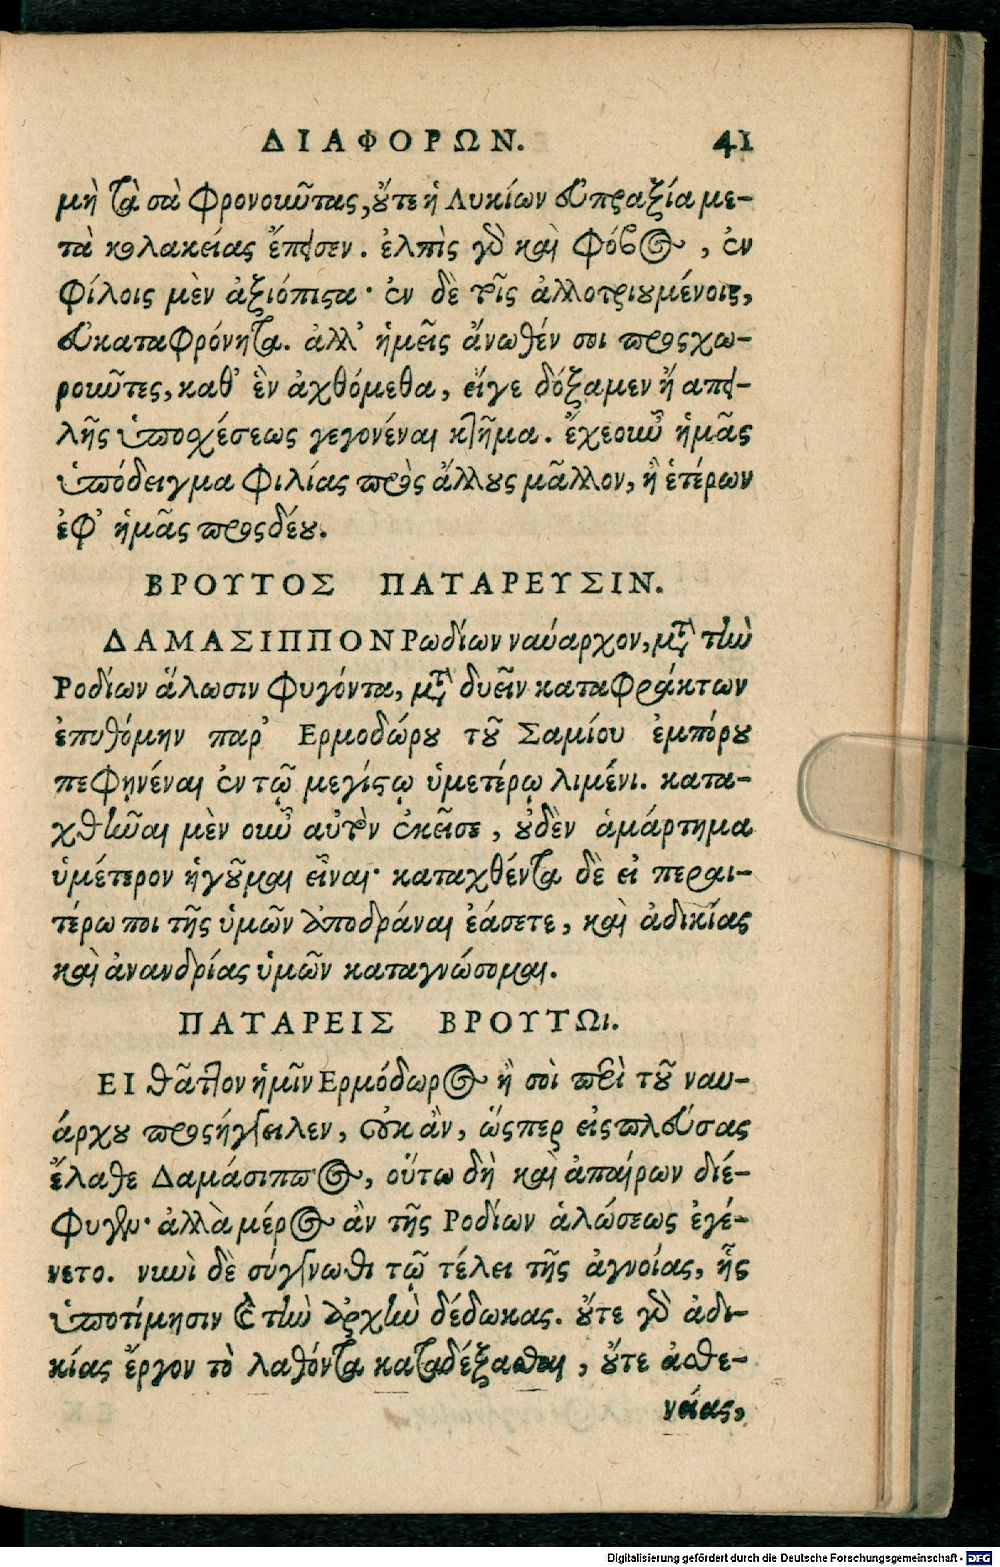 ΔΙΑΦΟΡΩΝ. 41
μὴ τὰ σὰ φρονοῦντας, οὔτε ἡ Λυκίων εὐπραξία με-
τὰ κολακείας ἔπεισεν. ἐλπὶς γὸ καὶ φόβος, ἐν
φίλοις μὲν ἀξιόπιστα· ἐν δὲ τοῖς ἀλλοτριουμένοις,
εὐκαταφρόνητα. ἀλλ' ἡμεῖς ἄνωθέν σοι προςχω-
ροῦντες, καθ' ἓν ἀχθόμεθα, εἴγε δόξαμεν ἢ απει-
λῆς ὑποσχέσεως γεγονέναι κτῆμα. ἔχε οὖν ἡμᾶς
ὑπόδειγμα φιλίας πρὸς ἄλλους μᾶλλον, ἢ ἑτέρων
ἐφ' ἡμᾶς προςδέου.
ΒΡΟΥΤΟΣ ΠΑΤΑΡΕΥΣΙΝ.
ΔΑΜΑΣΙΠΠΟΝ Ρωδίων ναύαρχον, μτ τὴν
Ροδίων ἅλωσιν φυγόντα, μτ δυεῖν καταφράκτων
ἐπυθόμην παρ' Ερμοδώρου τοῦ Σαμίου ἐμπόρου
πεφηνέναι ἐν τῷ μεγίστῳ ὑμετέρῳ λιμένι. κατα-
χθῆναι μὲν οὖν αὐτὸν ἐκεῖσε, οὐδὲν ἁμάρτημα
ὑμέτερον ἡγοῦμαι εἶναι· καταχθέντα δὲ εἰ περαι-
τέρω ποι τῆς ὑμῶν ἀποδράναι ἐάσετε, καὶ ἀδικίας
καὶ ἀνανδρίας ὑμῶν καταγνώσομαι.
ΠΑΤΑΡΕΙΣ ΒΡΟΥΤΩι.
ΕΙ θᾶττον ἡμῖν Ερμόδωρος ἢ σοὶ περὶ τοῦ ναυ-
άρχου προςήγγειλεν, οὐκ ἂν, ὥςπερ εἰςπλεύσας
ἔλαθε Δαμάσιππος, οὕτω δὴ καὶ ἀπαίρων διέ-
φυγεν· ἀλλὰ μέρος ἂν τῆς Ροδίων ἁλώσεως ἐγέ-
νετο. νυνὶ δὲ σύγγνωθι τῷ τέλει τῆς ἀγνοίας, ἧς
ὑποτίμησιν καὶ τὴν ἀρχὴν δέδωκας. οὔτε γὸ ἀδι-
κίας ἔργον τὸ λαθόντα καταδέξασθαι, οὔτε ἀσθε-
νείας,
Digitalisierung gefördert durch die Deutsche Forschungsgemeinschaft - DFG